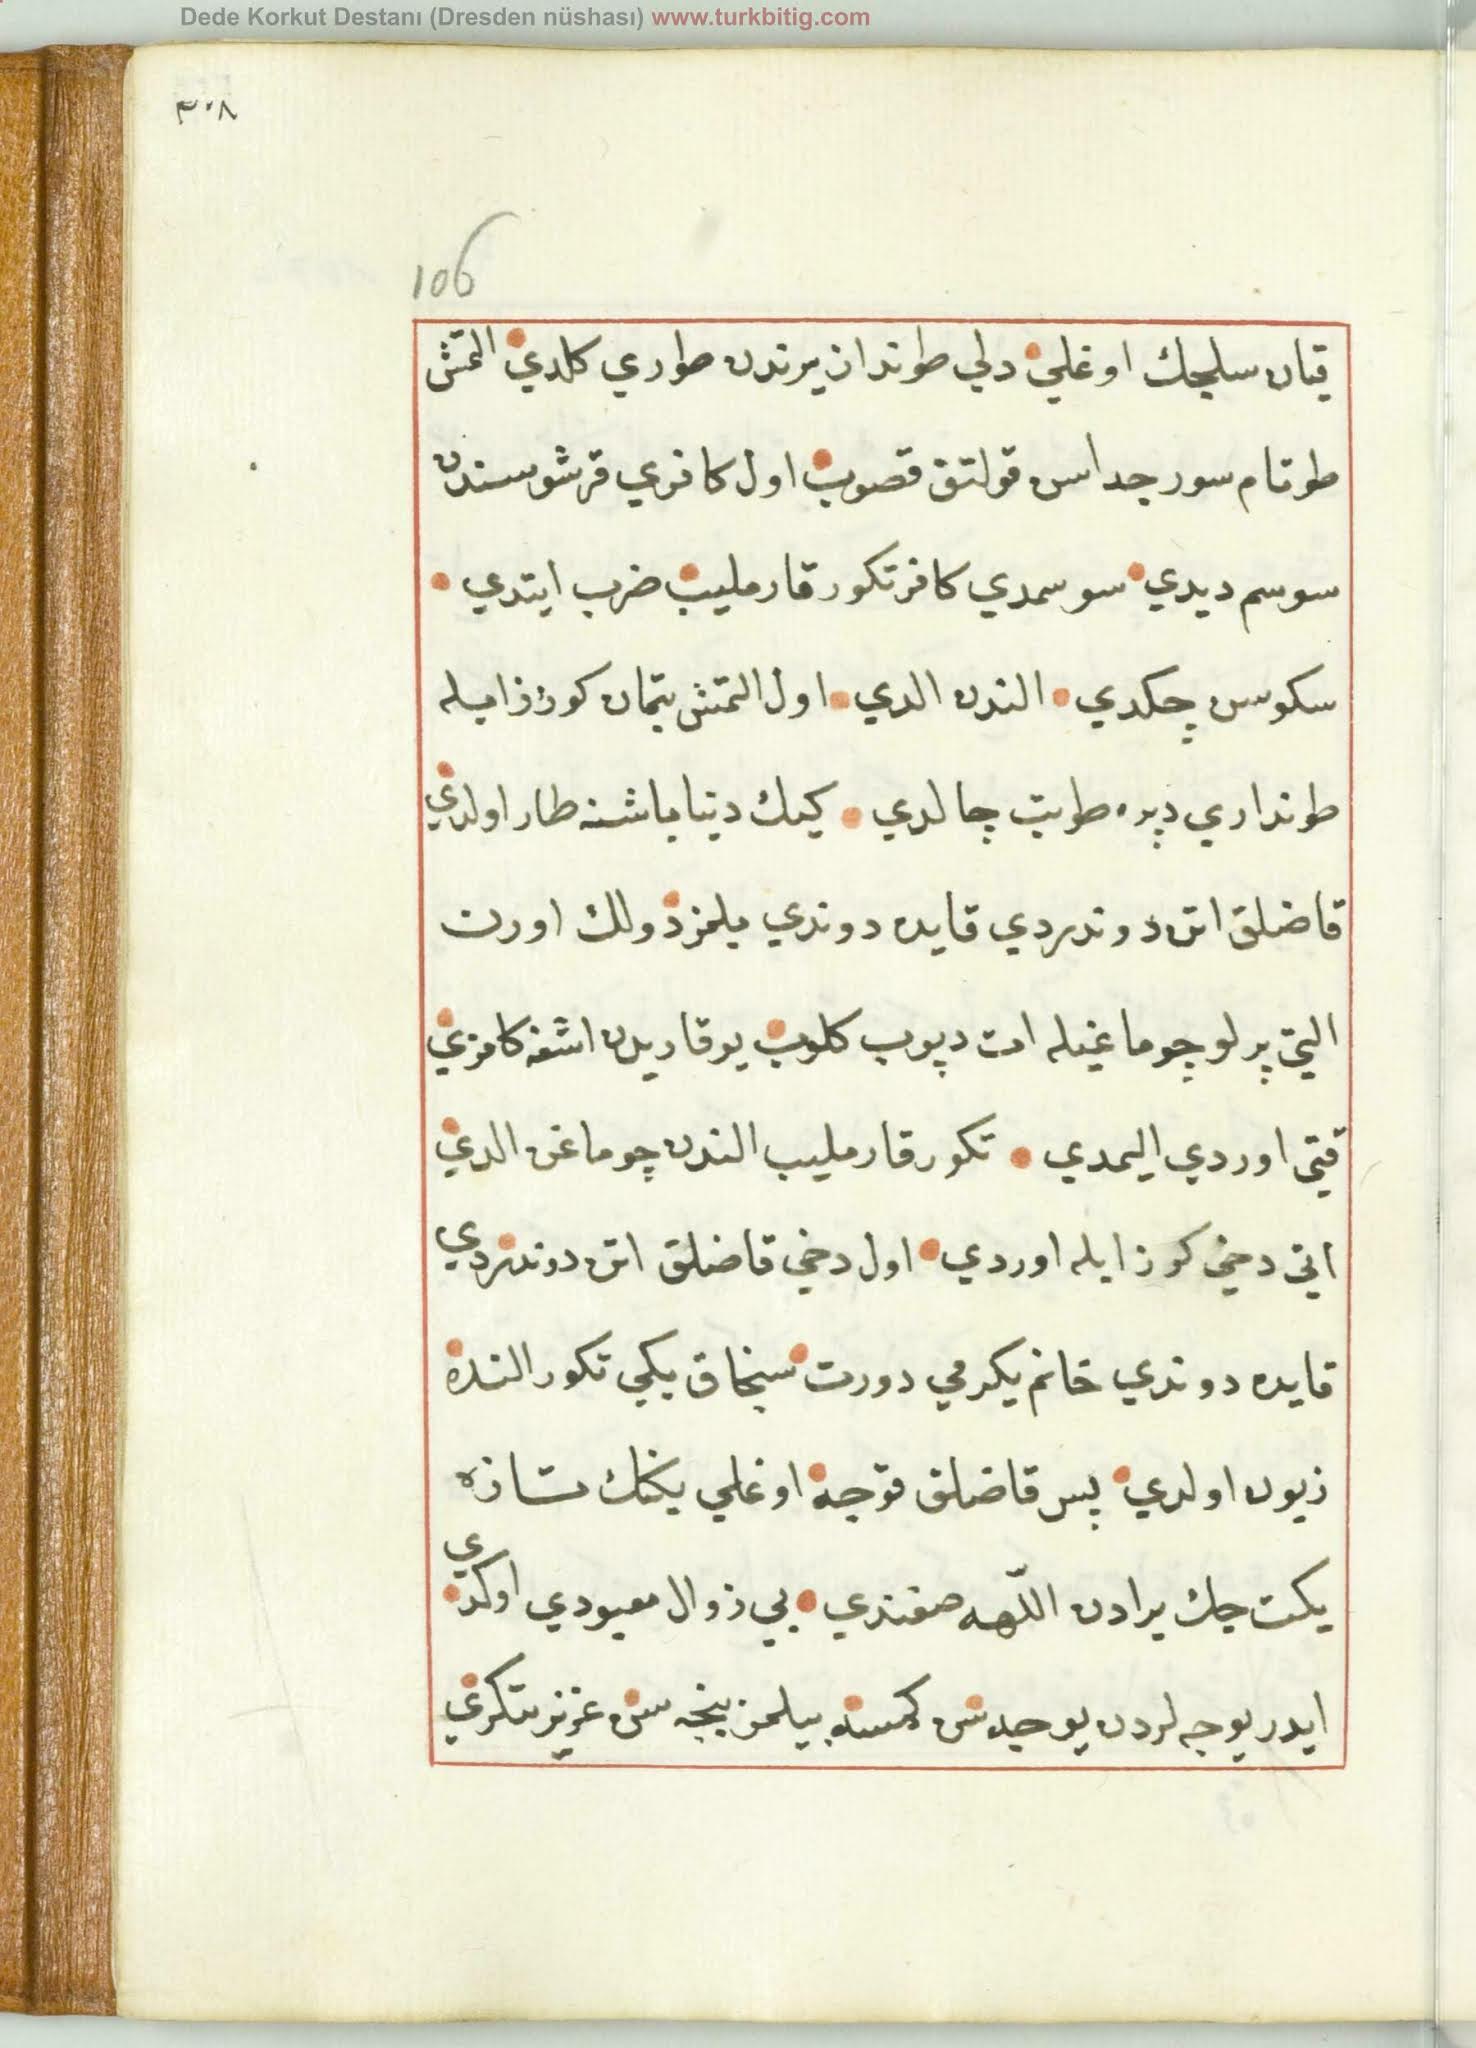 Dede Korkut Destanı (Dresden nüshası) www.turkbitig.com
٣٠٨
106
قیان سلجك اوغلي دلي طوندان یرندن طوري كلدي التمش
طوتام سور جداسن قولتق قصوب اول كافري قرشوسندن
سوسم دیدي سوسمدي كافر تكور قارملیب ضرب ایتدي
سكوسن چكدي الندن الدي اول التمش بتمان كورز ایله
طونداري دپره طوبت چالدي كیك دنیا باشنه طار اولدي
قاضلق اتن دوندردي قایده دوندي بلمز دولك اورن
التي پرلو چوماغیله ات دپوب كلوب یوقاریدن اشغه كافري
قتي اوردي الیمدي تكور قارملیب الندن چوماغن الدي
اني دخي كورز ایله اوردي اول دخي قاضلق اتن دوندردي
قایده دوندي خانم یكرمي دورت سنجاق بكي تكور النده
زبون اولدي پس قاضلق قوجه اوغلي یكنك تازه
یكت جك یرادن اللّهه صغندي بي زوال معبودي اوكدي
ایدر یوجه لردن یوجه سن كمسنه بیلمز نیجه سن عزیز تنكري